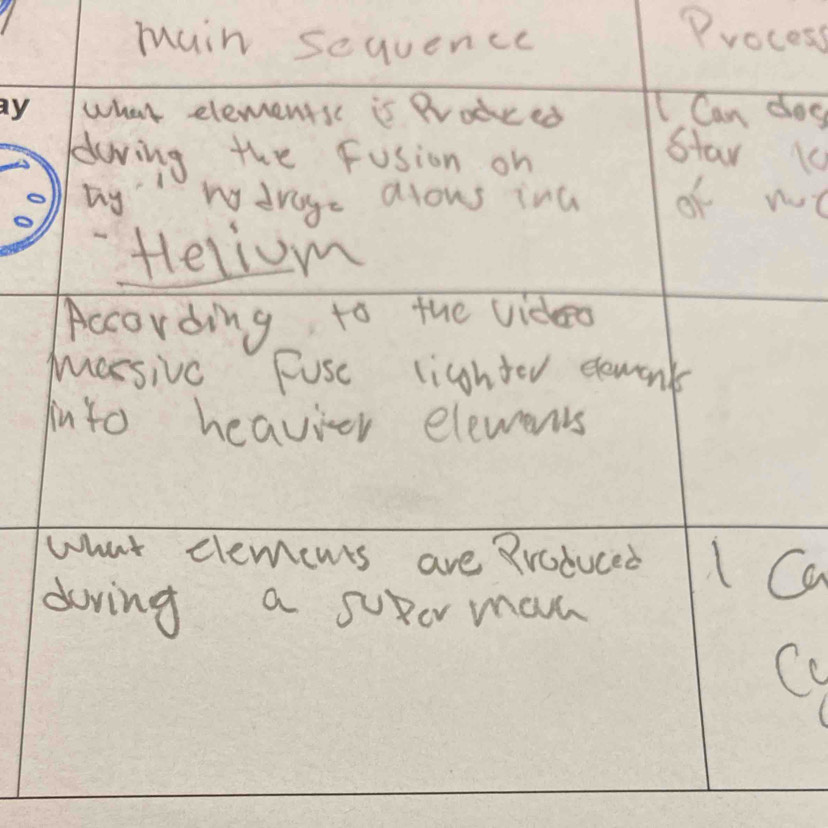 main sequence
Process
ay
what elements is Produced
during the Fusion on
hy hydroge atoms in a
- Helium
I Can des
Star
of
According to the video
massive Fuse lighter elements
into heavier elements
what elements are Produced
during a super
I Ca